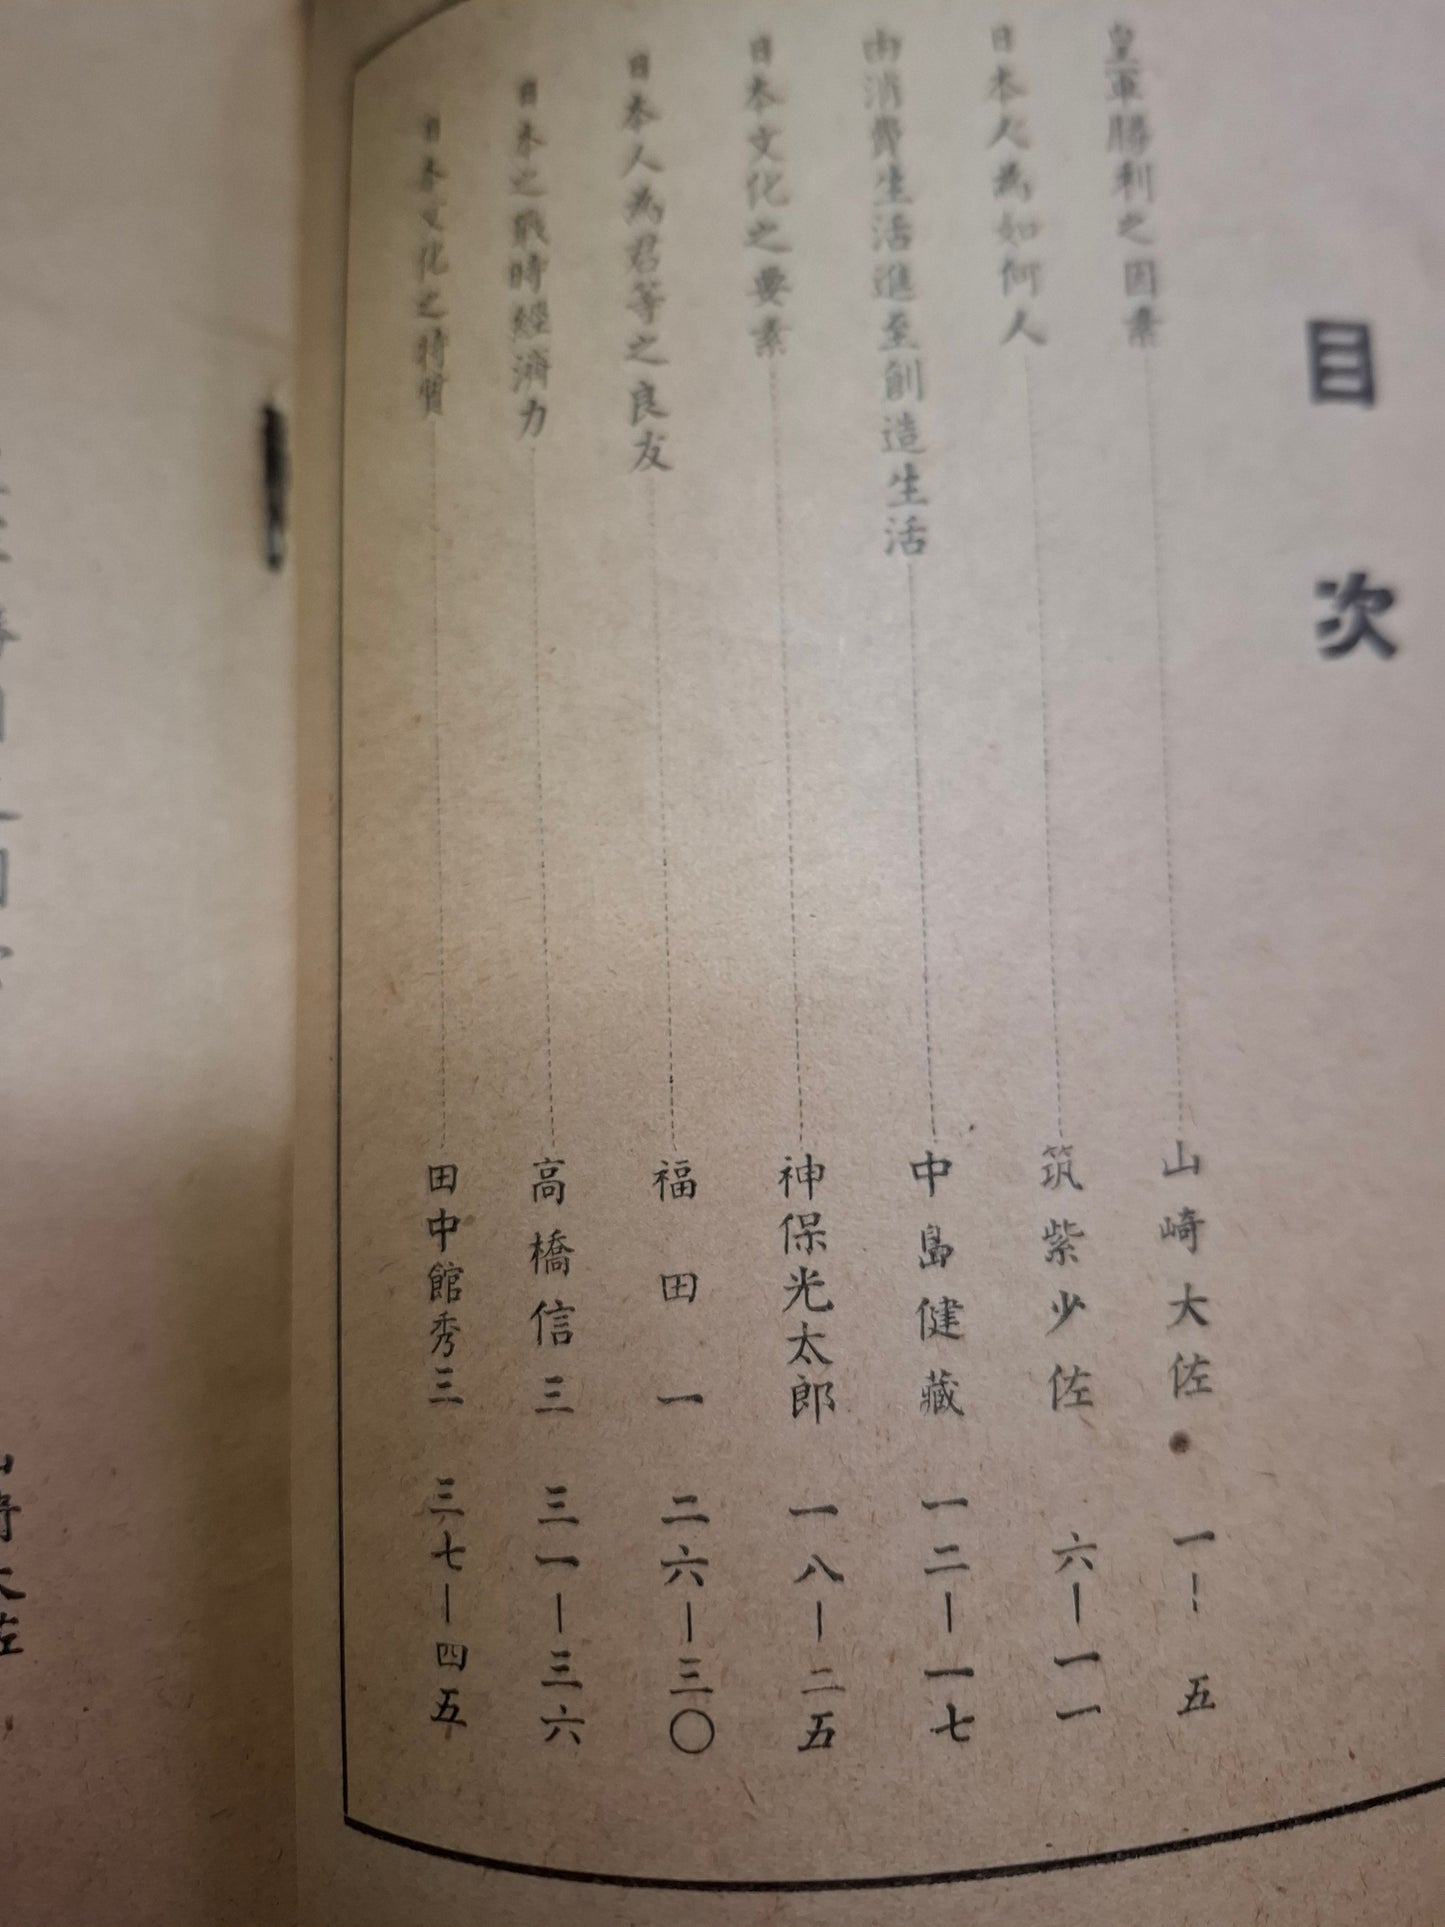 目次
皇軍勝利之因素 山崎大佐 一—五
日本人為如何人 筑紫少佐 六—一一
由消費生活進至創造生活 中島健藏 一二—一七
日本文化之要素 神保光太郎 一八—二五
日本人為君等之良友 福田一 二六—三〇
日本之戰時經濟力 高橋信三 三一—三六
日本文化之特質 田中館秀三 三七—四五